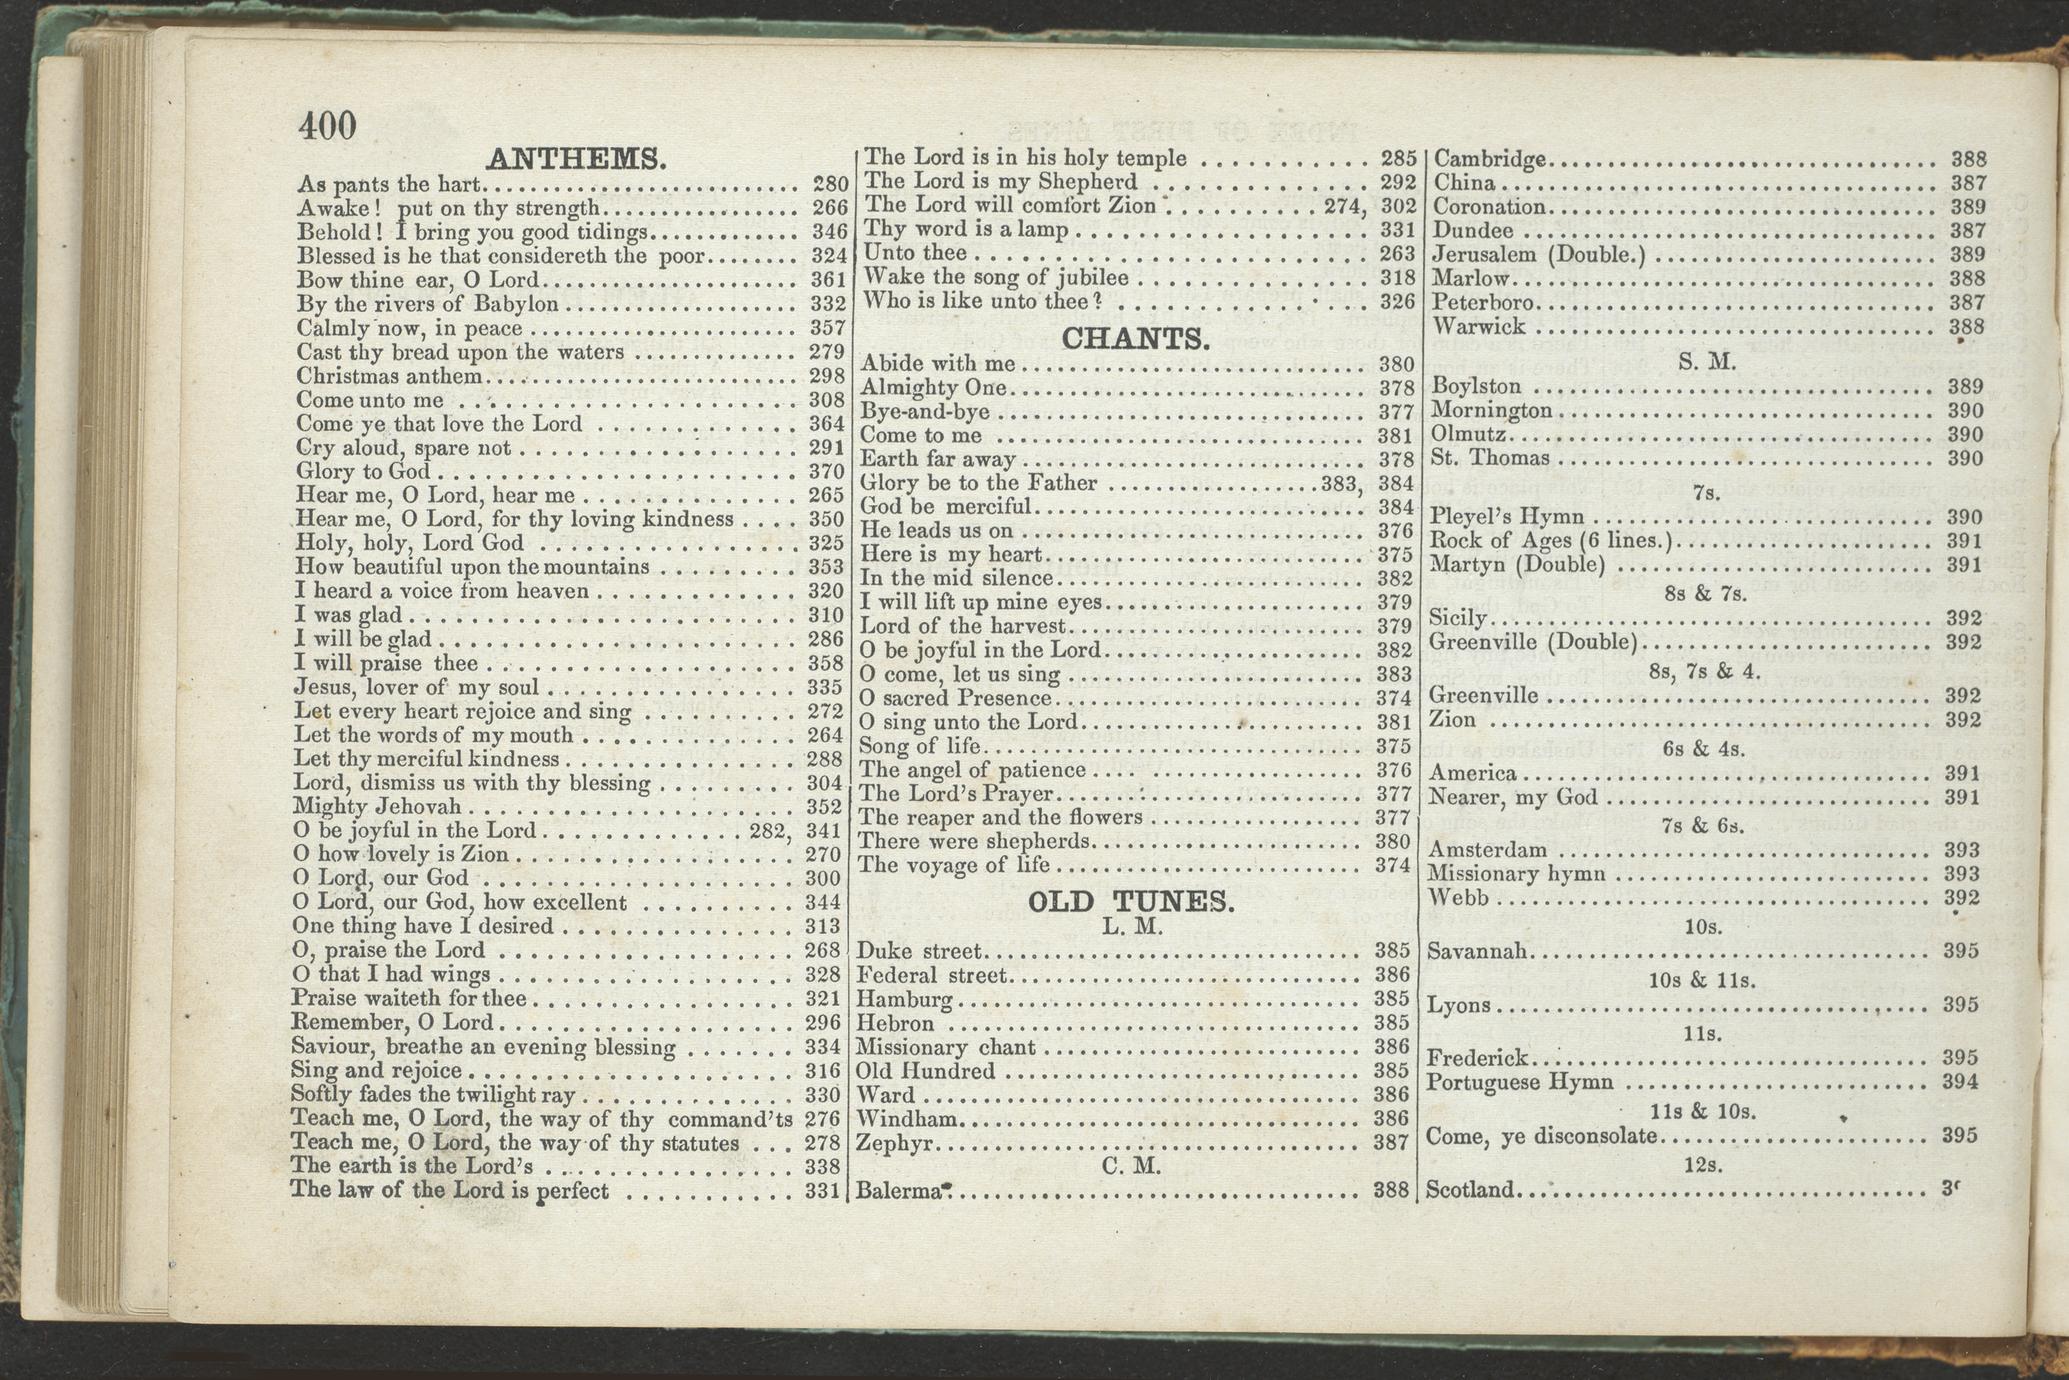 400
ANTHEMS.
As pants the hart........................... 280
Awake! put on thy strength................. 266
Behold! I bring you good tidings............. 346
Blessed is he that considereth the poor........ 324
Bow thine ear, O Lord...................... 361
By the rivers of Babylon .................... 332
Calmly now, in peace ....................... 357
Cast thy bread upon the waters .............. 279
Christmas anthem........................... 298
Come unto me ............................. 308
Come ye that love the Lord ............. 364
Cry aloud, spare not .................. 291
Glory to God ....................... 370
Hear me, O Lord, hear me .............. 265
Hear me, O Lord, for thy loving kindness .... 350
Holy, holy, Lord God ................. 325
How beautiful upon the mountains ......... 353
I heard a voice from heaven ............. 320
I was glad ......................... 310
I will be glad ....................... 286
I will praise thee .................... 358
Jesus, lover of my soul ................ 335
Let every heart rejoice and sing .......... 272
Let the words of my mouth .............. 264
Let thy merciful kindness ............... 288
Lord, dismiss us with thy blessing ......... 304
Mighty Jehovah ..................... 352
O be joyful in the Lord ............. 282, 341
O how lovely is Zion .................. 270
O Lord, our God .................... 300
O Lord, our God, how excellent .......... 344
One thing have I desired ............... 313
O, praise the Lord ................... 268
O that I had wings ................... 328
Praise waiteth for thee ................. 321
Remember, O Lord ................... 296
Saviour, breathe an evening blessing ....... 334
Sing and rejoice ..................... 316
Softly fades the twilight ray .............. 330
Teach me, O Lord, the way of thy command'ts 276
Teach me, O Lord, the way of thy statutes ... 278
The earth is the Lord's ................ 338
The law of the Lord is perfect ........... 331
The Lord is in his holy temple ........... 285
The Lord is my Shepherd .............. 292
The Lord will comfort Zion .......... 274, 302
Thy word is a lamp ................... 331
Unto thee ......................... 263
Wake the song of jubilee ............... 318
Who is like unto thee? ................ 326
CHANTS.
Abide with me ............................. 380
Almighty One.............................. 378
Bye-and-bye ............................... 377
Come to me ............................... 381
Earth far away ............................. 378
Glory be to the Father ..................383, 384
God be merciful............................ 384
He leads us on ............................. 376
Here is my heart........................... 375
In the mid silence.......................... 382
I will lift up mine eyes...................... 379
Lord of the harvest......................... 379
O be joyful in the Lord...................... 382
O come, let us sing ......................... 383
O sacred Presence.......................... 374
O sing unto the Lord........................ 381
Song of life................................ 375
The angel of patience .... .................. 376
The Lord's Prayer.......................... 377
The reaper and the flowers .................. 377
There were shepherds....................... 380
The voyage of life .......................... 374
OLD TUNES.
L. M.
Duke street................................ 385
Federal street.............................. 386
Hamburg.................................. 385
Hebron ................................... 385
Missionary chant ........................... 386
Old Hundred .............................. 385
Ward ..................................... 386
Windham.................................. 386
Zephyr.................................... 387
C. M.
Balerma................................... 388
Cambridge................................. 388
China ..................................... 387
Coronation................................. 389
Dundee ................................... 387
Jerusalem (Double.) ........................ 389
Marlow.................................... 388
Peterboro.................................. 387
Warwick .................................. 388
S. M.
Boylston .................................. 389
Mornington ................................ 390
Olmutz.................................... 390
St. Thomas ................................ 390
7s.
Pleyel's Hymn ............................. 390
Rock of Ages (6 lines.)...................... 391
Martyn (Double) ........................... 391
8s & 7s.
Sicily...................................... 392
Greenville (Double)......................... 392
8s, 7s & 4.
Greenville ................................. 392
Zion ...................................... 392
6s & 4s.
America ................................... 391
Nearer, my God ............................ 391
7s & 6s.
Amsterdam ................................ 393
Missionary hymn ........................... 393
Webb ..................................... 392
10s.
Savannah.................................. 395
10s & 11s.
Lyons ..................................... 395
11s.
Frederick.................................. 395
Portuguese Hymn .......................... 394
11s & 10s.
Come, ye disconsolate....................... 395
12s.
Scotland...................................